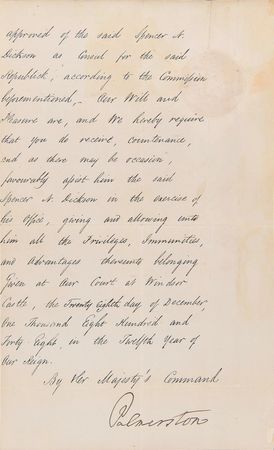 approved of the said Spencer N.
Dickson as Consul for the said
Republick, according to the Commission
beforementioned, Our Will and
Pleasure are, and We hereby require
that you do receive, countenance,
and as there may be occasion,
favourably assist him the said
Spencer N. Dickson in the exercise of
his Office, giving and allowing unto
him all the Privileges, Immunities,
and Advantages thereunto belonging
Given at Our Court at Windsor
Castle, the Twenty Eighth day of December,
One Thousand Eight Hundred and
Forty Eight, in the Twelfth Year of
Our Reign.
By Her Majesty's Command
Palmerston